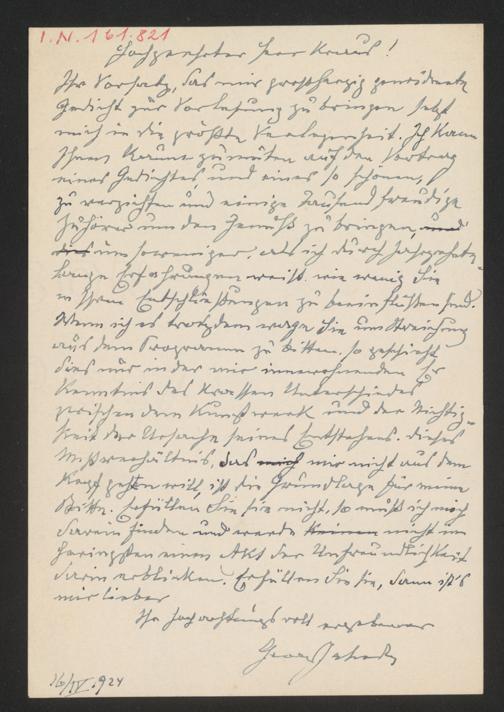 I.N. 161.821
Hochgeehrter Herr Kraus!
Ihr Vorsatz, das mir großherzig gewidmete
Gedicht zur Vorlesung zu bringen setzt
mich in die größte Verlegenheit. Ich kann
Ihnen kaum zumuten auf den Vortrag
eines Gedichtes, und eines so schönen,
zu verzichten und einige Tausend freudige
Zuhörer um den Genuß zu bringen, und
dies um soweniger, als ich durch jahrzehnte-
lange Erfahrungen weiß wie wenig Sie
in Ihren Entschließungen zu beeinflussen sind.
Wenn ich es trotzdem wage Sie um Streichung
aus dem Programm zu bitten, so geschieht
dies nur in der mir innewohnenden
Kenntnis des krassen Unterschiedes
zwischen dem Kunstwerk und der Nichtig-
keit der Ursache seines Entstehens. Dieses
Mißverhältnis, das mich mir nicht aus dem
Kopf gehen will, ist die Grundlage für meine
Bitte. Erfüllen Sie sie nicht, so muß ich mich
darein finden und werde keinen nicht im
Geringsten einen Akt der Unfreundlichkeit
darin erblicken. Erfüllen Sie sie, dann ist's
mir lieber
Ihr hochachtungsvoll ergebener
Georg Jahoda
16/IV. 1924